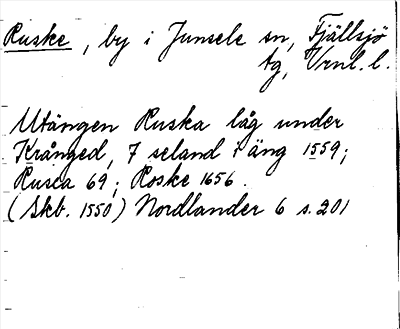 Ruske, by i Junsele sn, Fjällsjö
tg, Vrnl. l.
Utängen Ruska låg under
Krånged, 7 seland i äng 1559;
Rusca 69; Roske 1656.
(Skb. 1550) Nordlander 6 s. 201